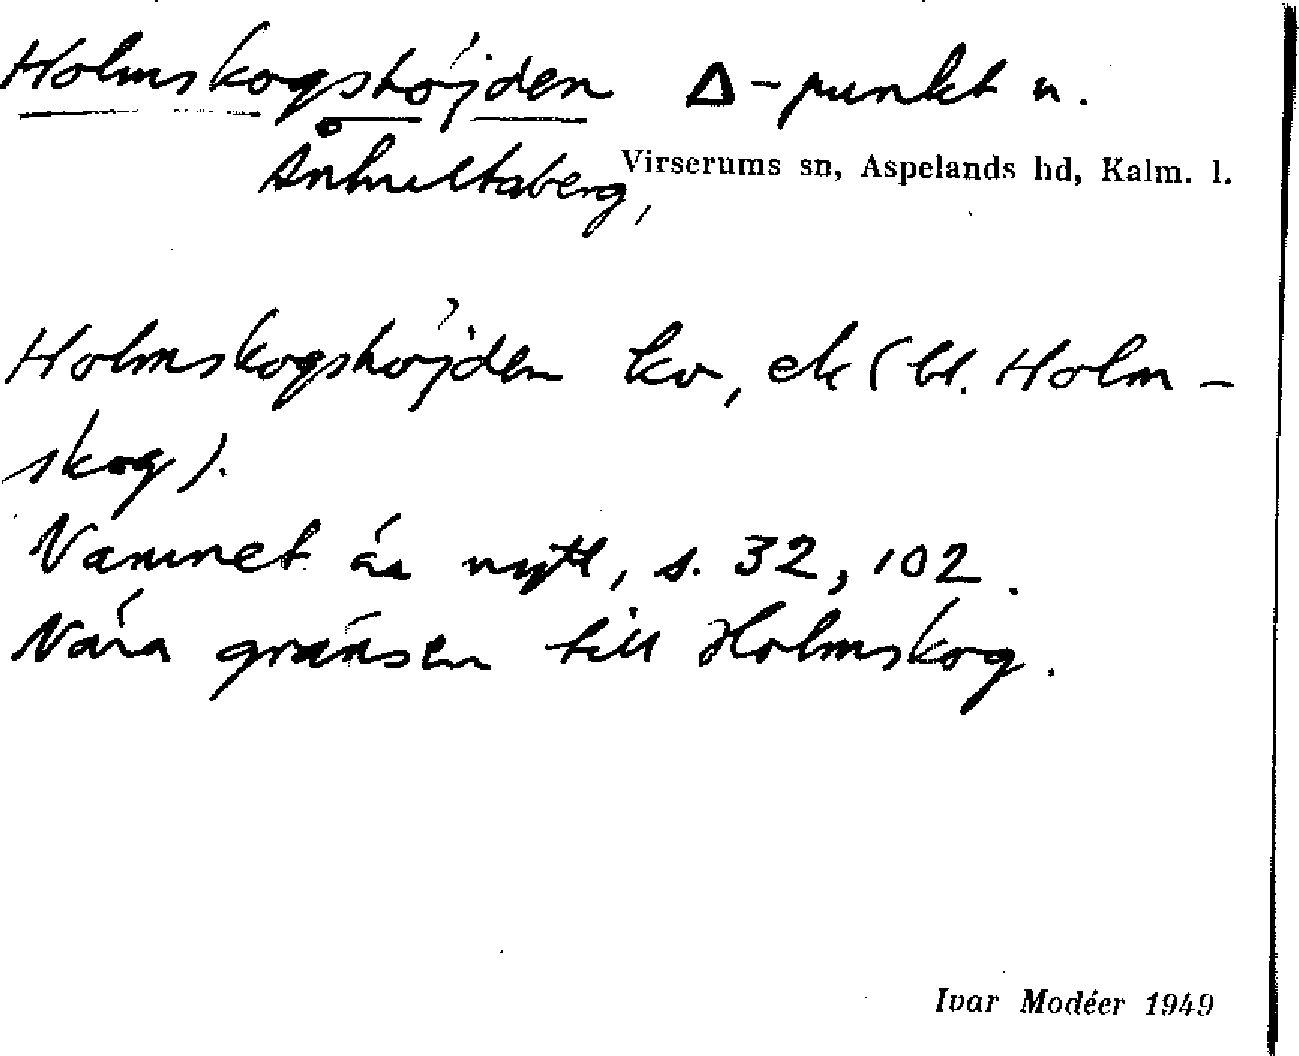 Holmskogshöjden Δ-punkt n.
Ånhultaberg,
Virserums sn, Aspelands hd, Kalm. l.
Holmskogshöjden kv, ek (bl. Holm-
skog).
Namnet är nytt, s. 32, 102.
Nära gränsen till Holmskog.
Ivar Modéer 1949